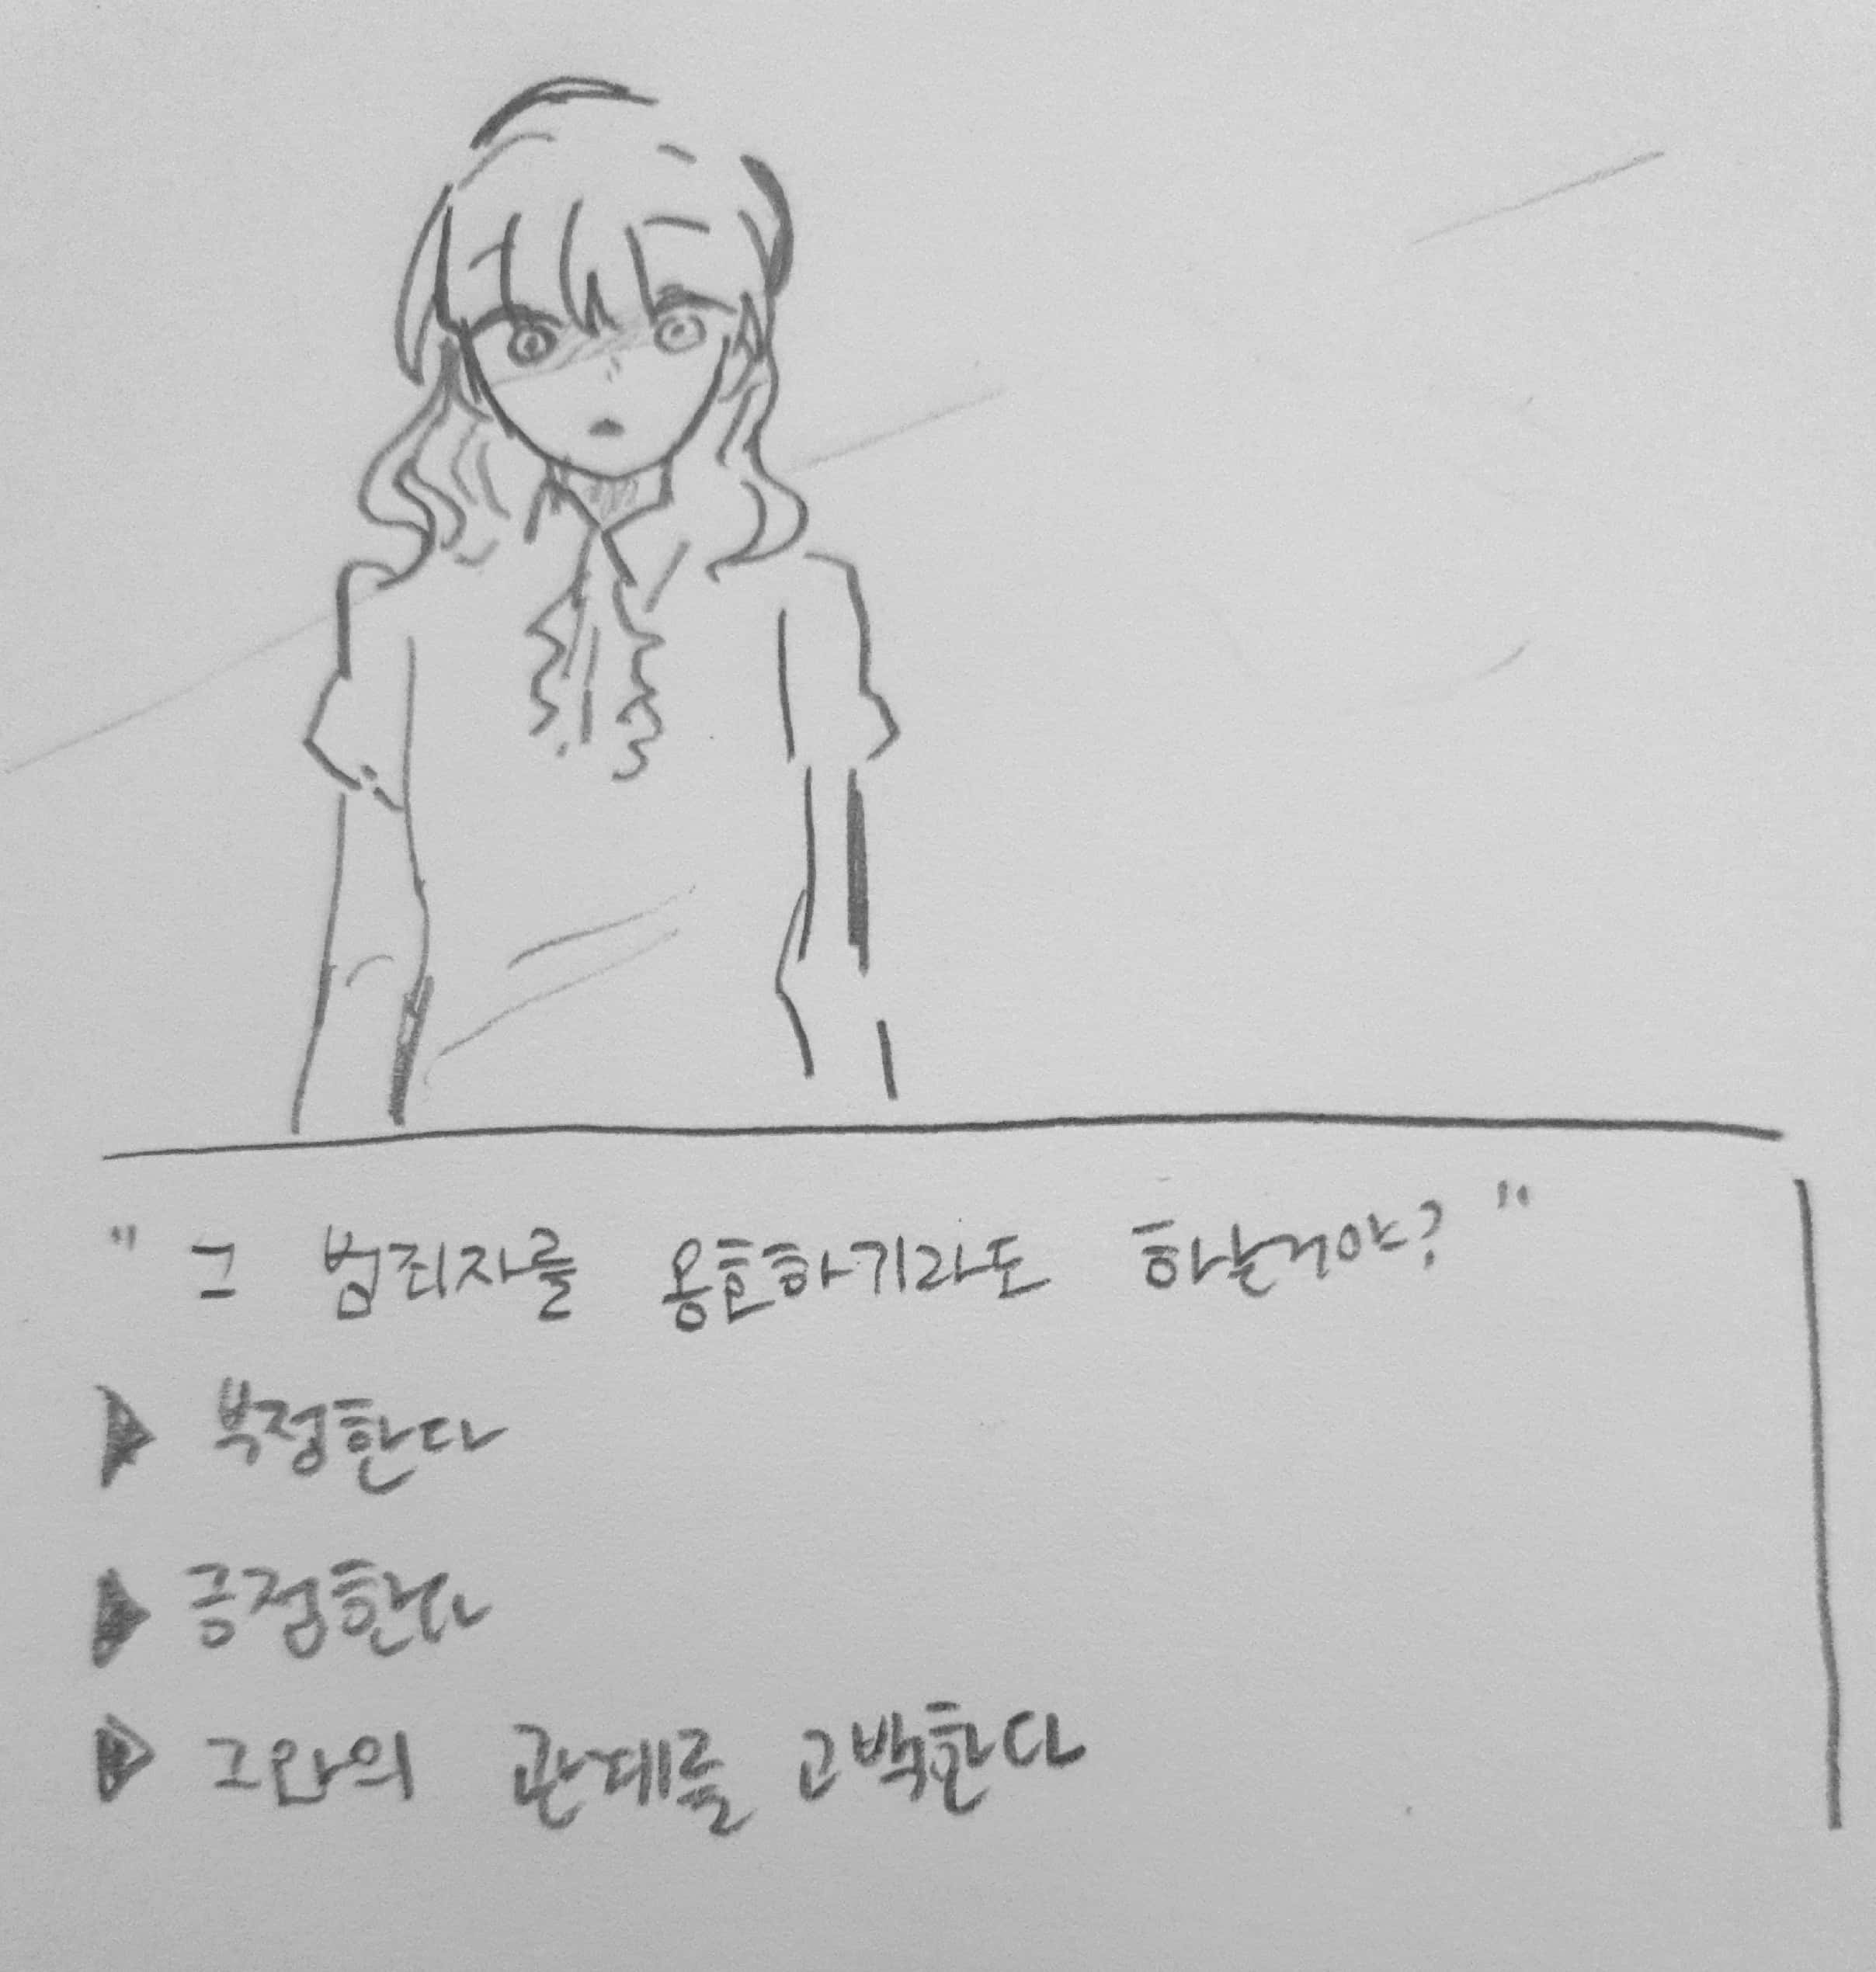 " 그 범죄자를 옹호하기라도 하는거야? "
▶ 부정한다
▶ 긍정한다
▶ 그와의 관계를 고백한다